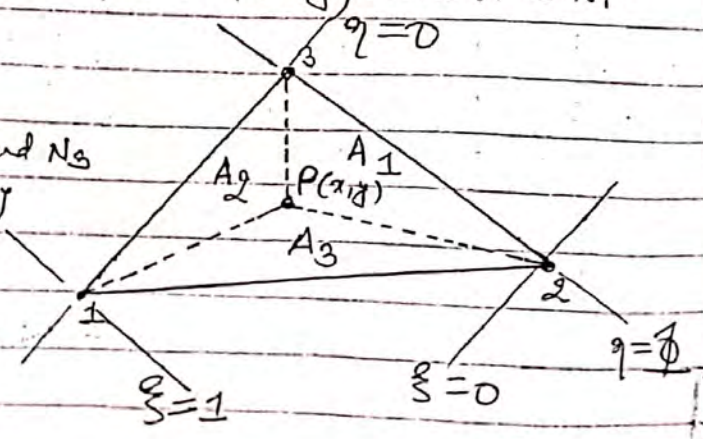 η=0
3
nd N3
A1
A2
P(x,y)
A3
1
2
ξ=1
ξ=0
η=1